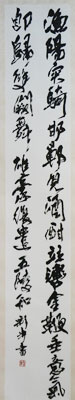 漁陽突騎邯鄲兒酒酣並轡金鞭垂意氣
即歸雙闕舞雄豪復遣五陵知
書